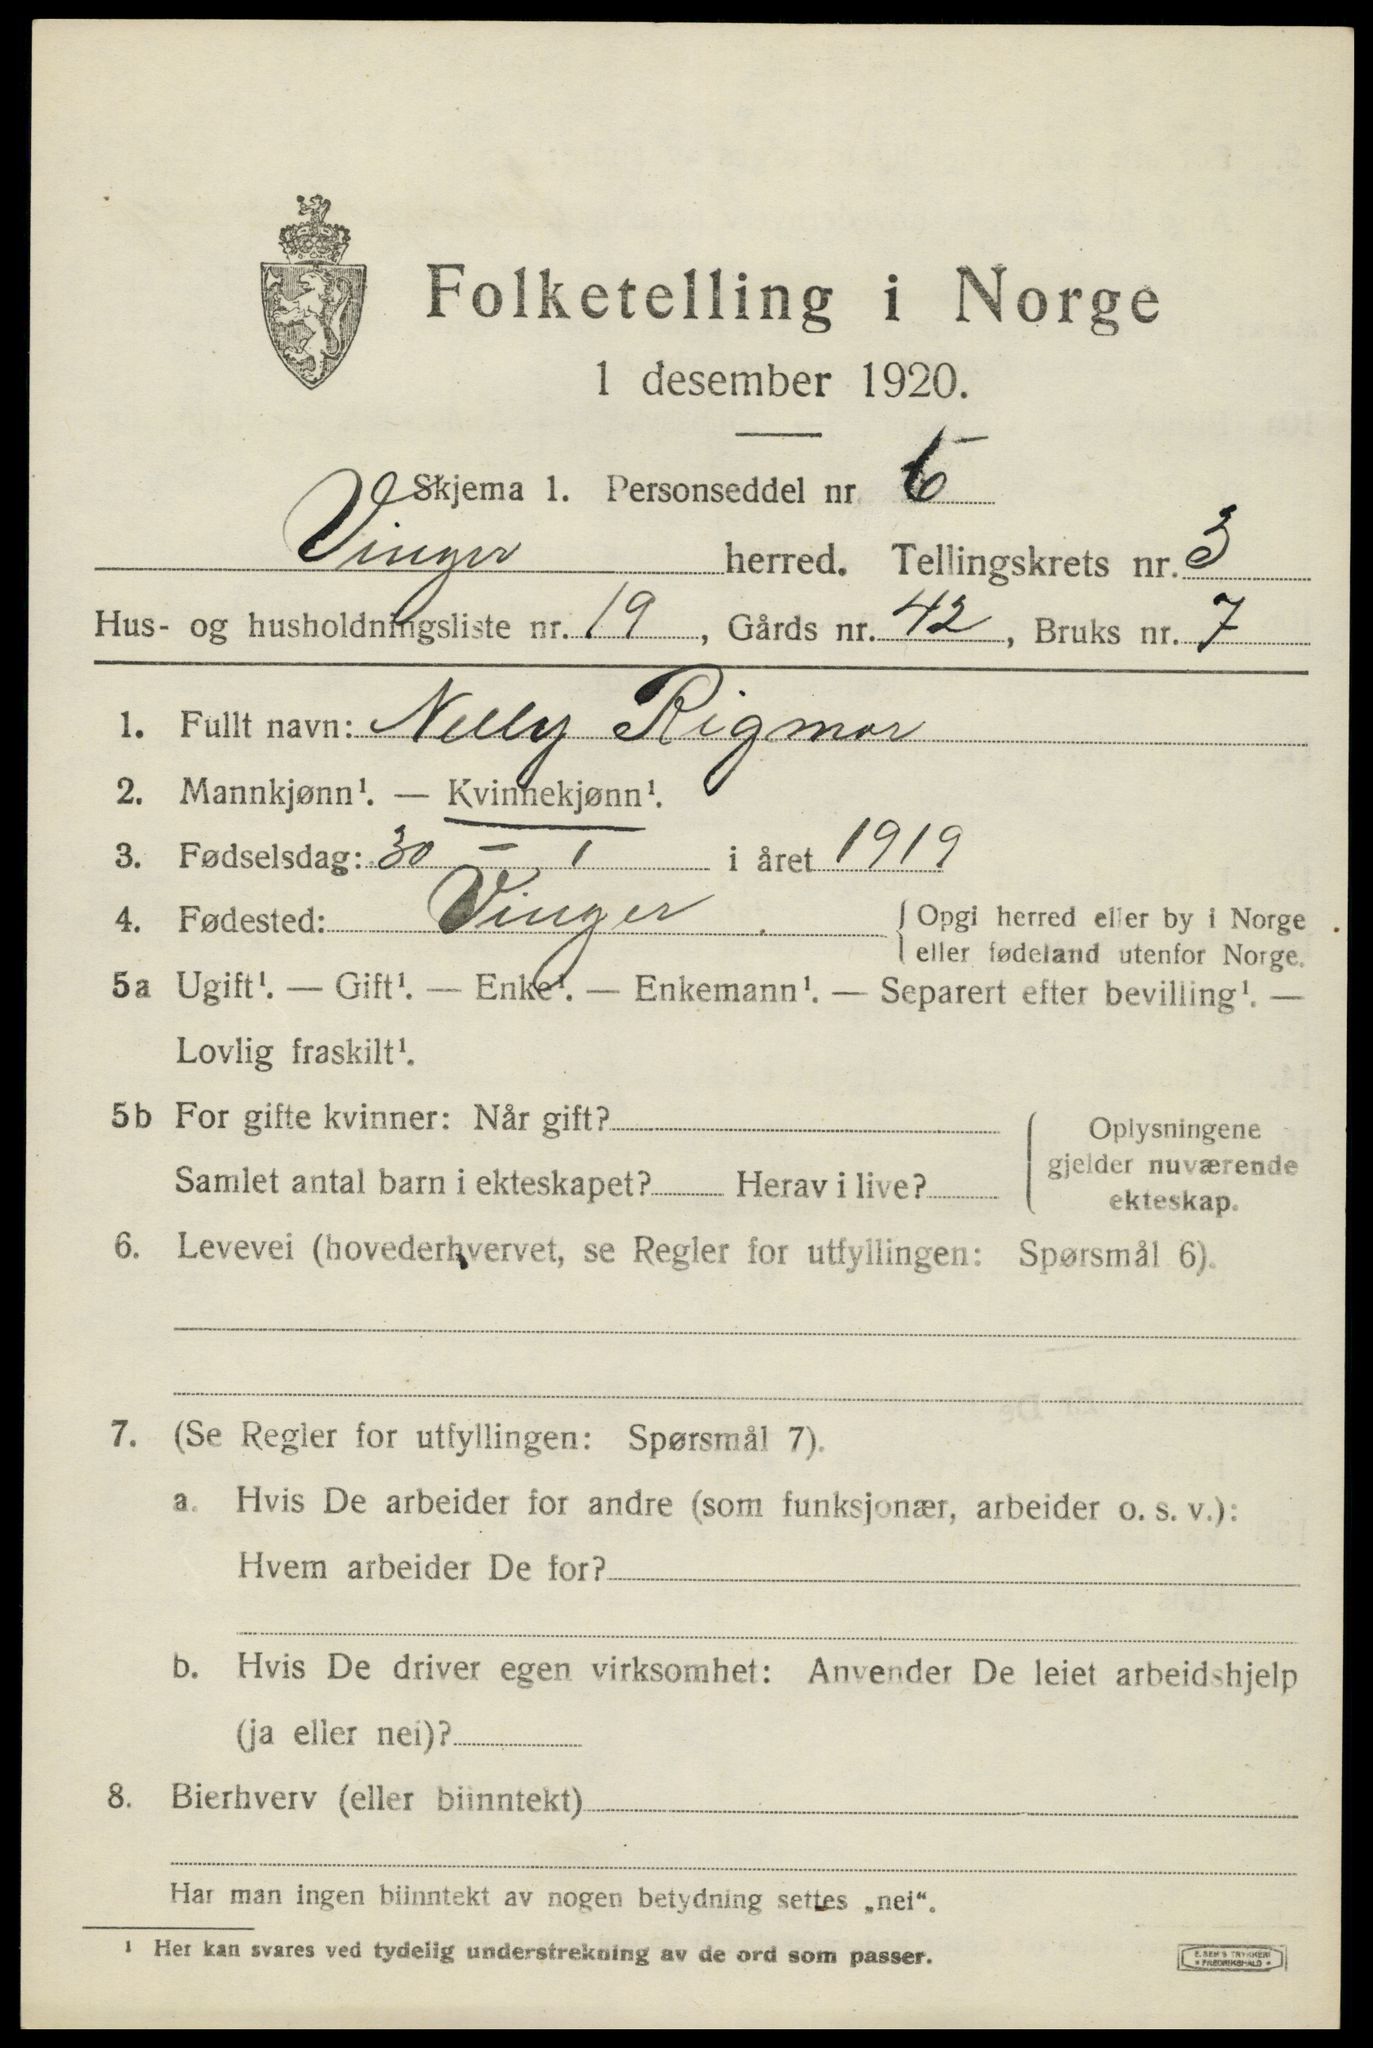 Folketelling i Norge
1 desember 1920.
Skjema 1. Personseddel nr
Vinger herred. Tellingskrets nr. 3
Hus- og husholdningsliste nr. 19, Gårds nr. 42, Bruks nr. 7
1. Fullt navn: Nelly Rigmor
2. Mannkjønn¹. — Kvinnekjønn¹.
3. Fødselsdag: 30 – 1 i året 1919
4. Fødested: Vinger { Opgi herred eller by i Norge
eller fødeland utenfor Norge.
5a Ugift¹. — Gift¹. — Enke¹. — Enkemann¹. — Separert efter bevilling¹. —
Lovlig fraskilt¹.
5b For gifte kvinner: Når gift?
Samlet antal barn i ekteskapet? Herav i live?
Oplysningene
gjelder nuværende
ekteskap.
6. Levevei (hovederhvervet, se Regler for utfyllingen: Spørsmål 6).
7. (Se Regler for utfyllingen: Spørsmål 7).
a. Hvis De arbeider for andre (som funksjonær, arbeider o. s. v.):
Hvem arbeider De for?
b. Hvis De driver egen virksomhet: Anvender De leiet arbeidshjelp
(ja eller nei)?
8. Bierhverv (eller biinntekt)
Har man ingen biinntekt av nogen betydning settes „nei“.
¹ Her kan svares ved tydelig understrekning av de ord som passer.
E. SEM'S TRYKKERI
* FREDRIKSHALD *